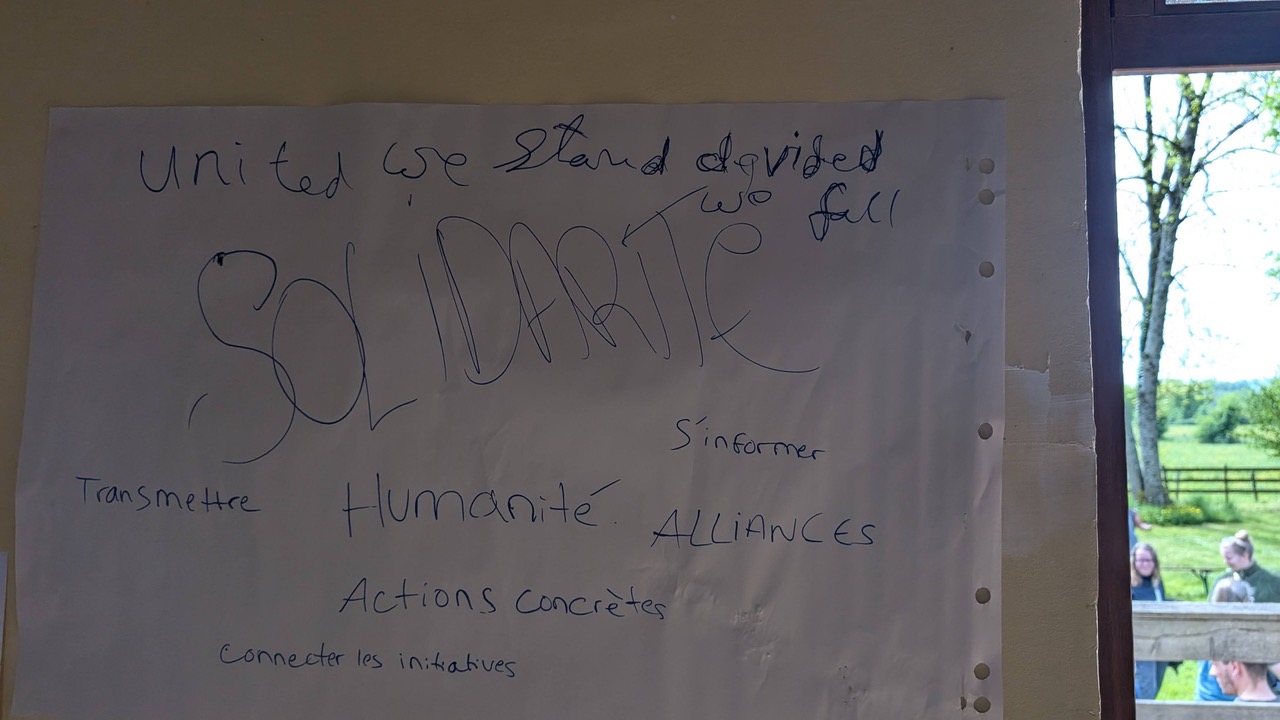 United we stand devided
we fall
SOLIDARITE
S'informer
Transmettre
Humanité
ALLIANCES
Actions concrètes
Connecter les initiatives